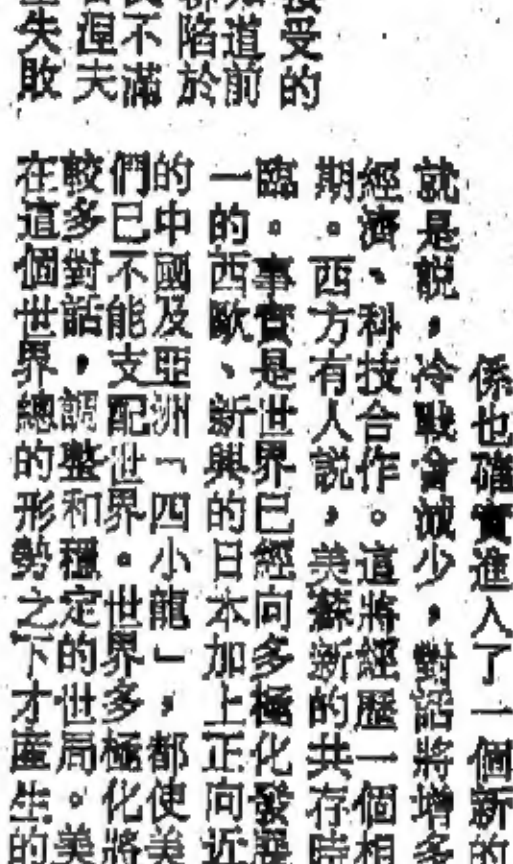 受的
道前
陷於
不滿
涅夫
失敗
係也確實進入了一個新的
就是説，冷戰會減少，對話將增多
經濟、科技合作。這將經歷一個相
期。西方有人説，美蘇新的共存時
臨。事實是世界已經向多極化發展
一的西歐、新興的日本加上正向近
的中國及亞洲「四小龍」，都使美
們已不能支配世界。世界多極化將
較多對話，調整和穩定的世局。美
在這個世界總的形勢之下才產生的